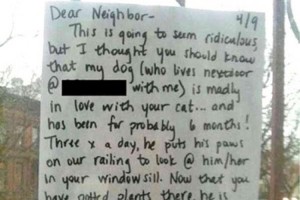 Dear Neighbor- 4/9
This is going to seem ridiculous,
but I thought you should know
that my dog (who lives nextdoor
@ with me) is madly
in love with your cat... and
has been for probably 6 months!
Three x a day, he puts his paws
on our railing to look @ him/her
in your windowsill. Now that you
have potted plants there, he is